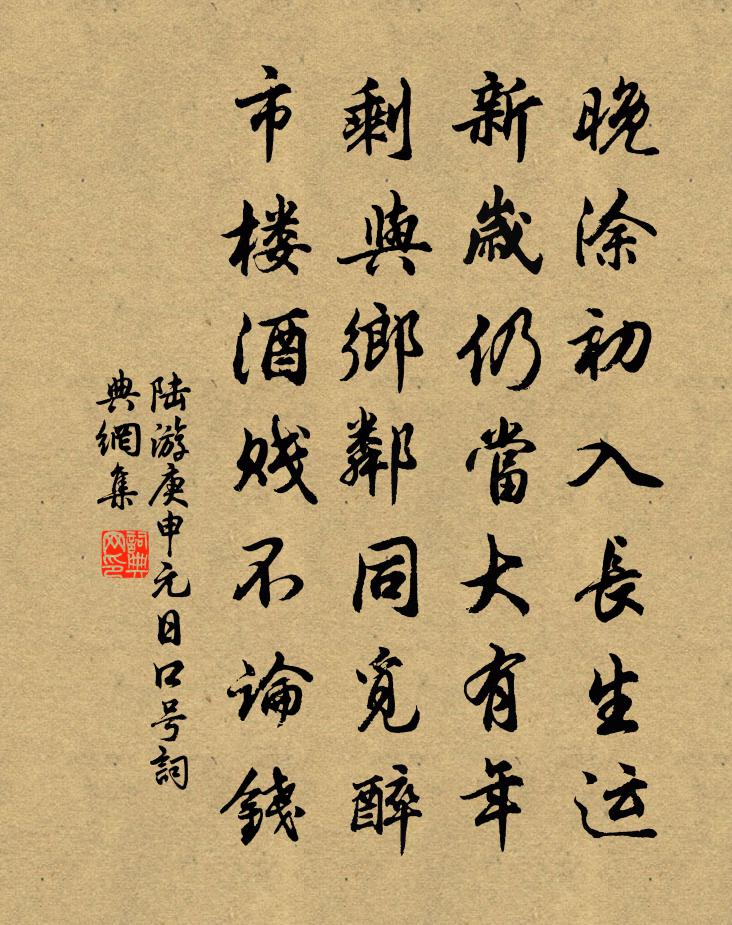 晚涂初入長生运
新歲仍當大有年
剩與鄉鄰同覓醉
市楼酒賤不論錢
陆游庚申元日口号詞
典網集
詞典
网印